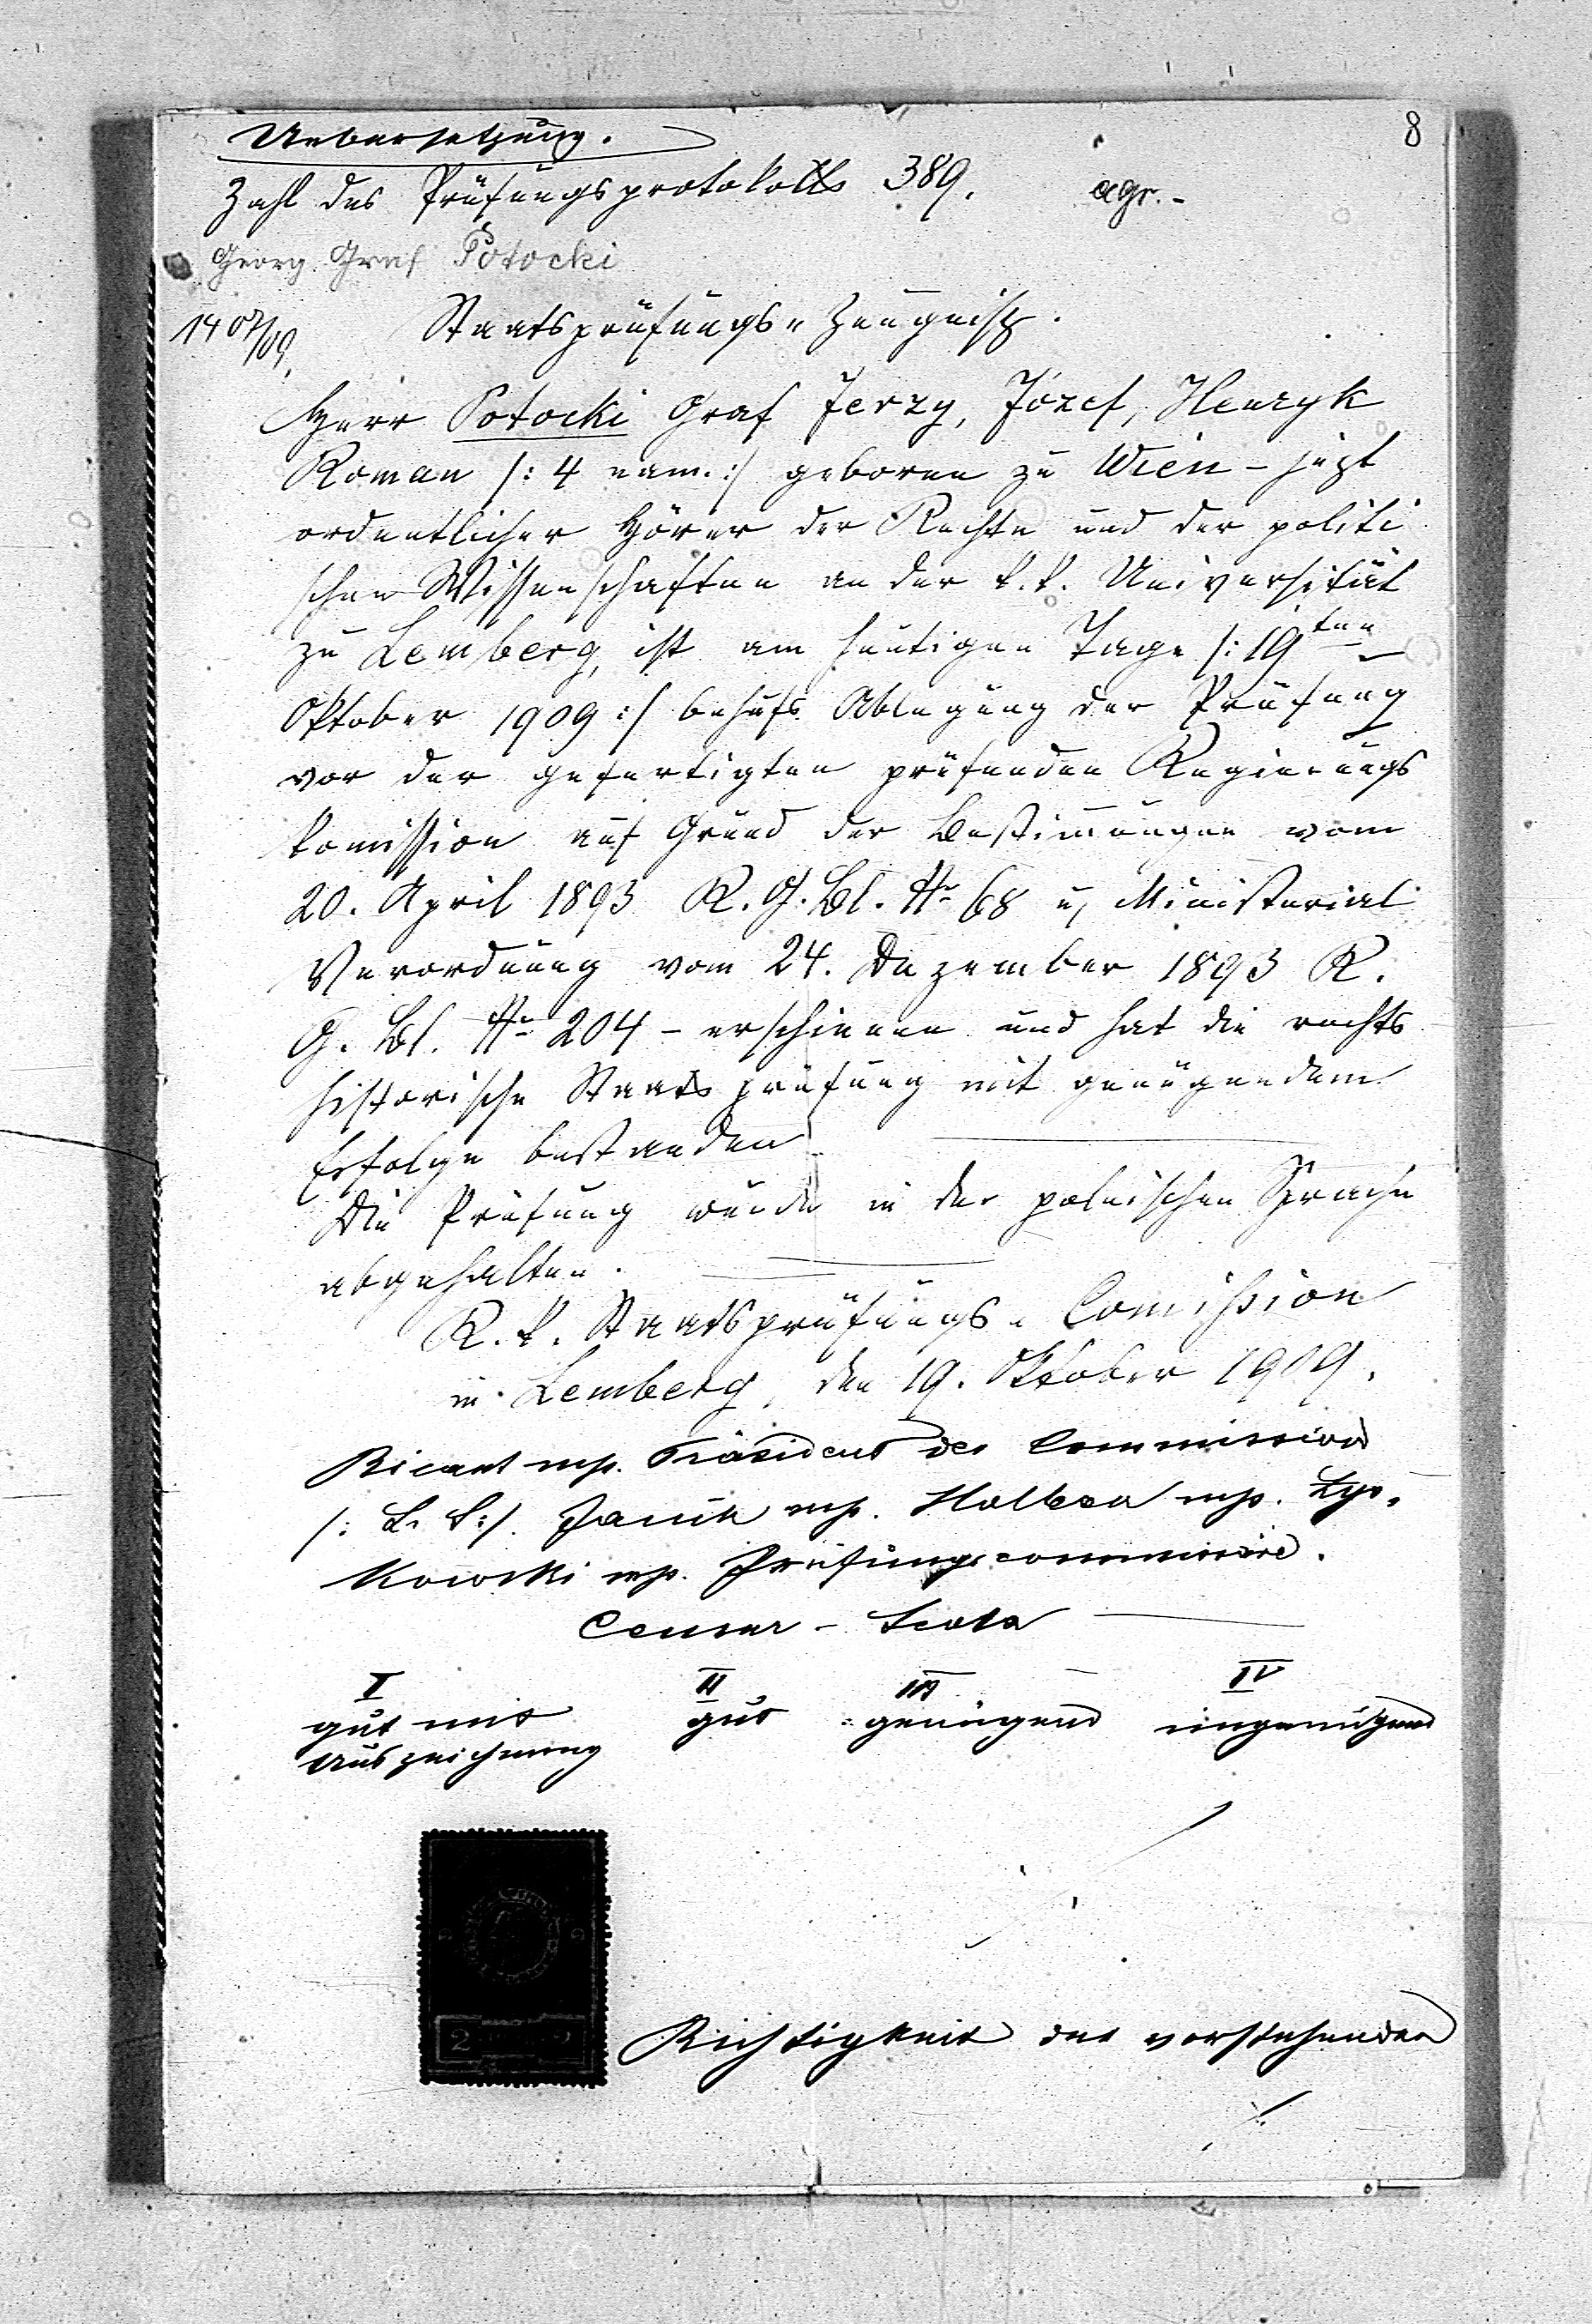 8
Uebersetzung.
Zahl des Prüfungsprotokolls 389. agr.-
Georg Graf Potocki
1407/09.
Staatsprüfungs-Zeugniß.
Herr Potocki Graf Jerzy, Józef, Henryk
Roman /: 4 nam. :/ geboren zu Wien - jezt
ordentlicher Hörer der Rechte und der politi
schen Wissenschaften an der k.k. Universität
zu Lemberg, ist am heutigen Tage /: 19ten
Oktober 1909 :/ behufs Ablegung der Prüfung
vor der gefertigten prüfenden Regierungs
komission auf Grund der Bestimmungen vom
20. April 1893 R. G. Bl. No 68 u, Ministerial
Verordnung vom 24. Dezember 1893 R.
G. Bl. No 204 - erschienen und hat die rechts
historische Staatsprüfung mit genügendem
Erfolge bestanden
Die Prüfung wurde in der polnischen Sprache
abgehalten.
K. k. Staatsprüfungs-Comission
in Lemberg, den 19. Oktober 1909.
mp. Präsident der Commission
/: L. S. :/. mp. Halban mp. Ly-
kowski mp. Prüfungscommissäre.
Censur - Scala
I II III IV
gut mit gut genügend ungenügend
Auszeichnung
2 2
Richtigkeit der vorstehenden
./.